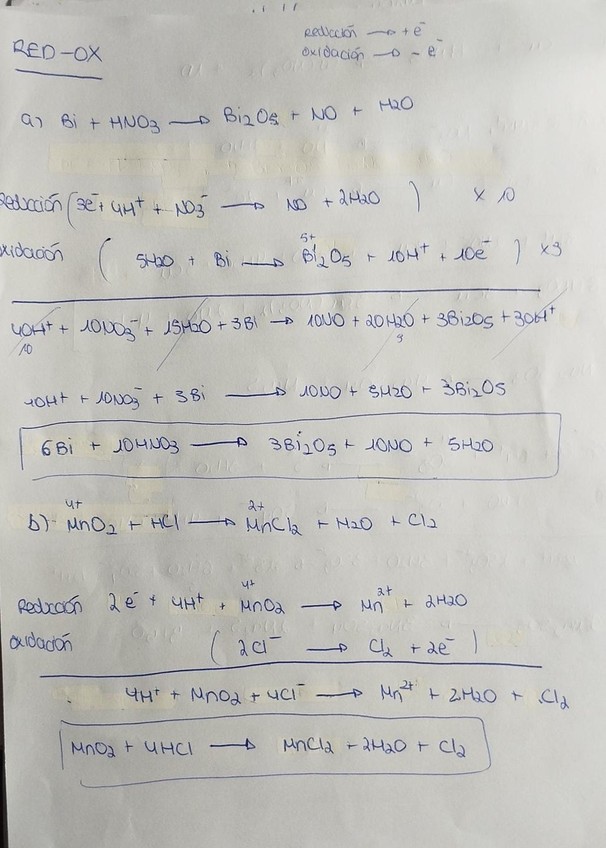 Reducción → +e⁻
RED-OX
oxidación → -e⁻
a) Bi + HNO3 → Bi2O5 + NO + H2O
Reducción (3e⁻ + 4H⁺ + NO3⁻ → NO + 2H2O) x 10
oxidación (5H2O + Bi → Bi2O5 + 10H⁺ + 10e⁻) x3
5+
40H⁺ + 10NO3⁻ + 15H2O + 3Bi → 10NO + 20H2O + 3Bi2O5 + 30H⁺
10 5
10H⁺ + 10NO3⁻ + 3Bi → 10NO + 5H2O + 3Bi2O5
6Bi + 10HNO3 → 3Bi2O5 + 10NO + 5H2O
4+ 2+
b) MnO2 + HCl → MnCl2 + H2O + Cl2
4+ 2+
Reducción 2e⁻ + 4H⁺ + MnO2 → Mn + 2H2O
oxidación (2Cl⁻ → Cl2 + 2e⁻)
4H⁺ + MnO2 + 4Cl⁻ → Mn²⁺ + 2H2O + Cl2
MnO2 + 4HCl → MnCl2 + 2H2O + Cl2